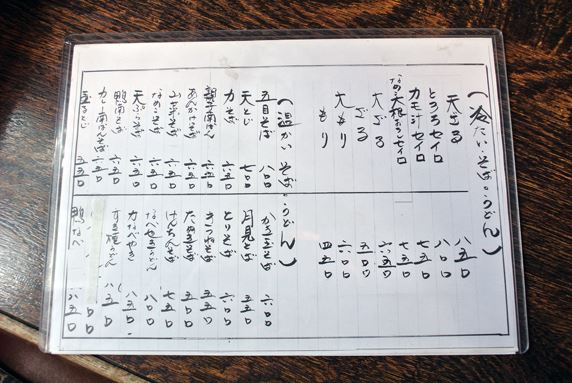 (冷たい そば・うどん)
天ざる 八五〇
とろろセイロ 八〇〇
カモ汁セイロ 七五〇
なめこ大根おろしセイロ 七五〇
大ざる 六五〇
ざる 五〇〇
大もり 六〇〇
もり 四五〇
(温かい そば・うどん)
五目そば 八〇〇
天とじ 七〇〇
力そば 六五〇
親子南ばん 六五〇
あんかけそば 六五〇
山菜そば 六五〇
なめこそば 六五〇
天ぷらそば 六五〇
鴨南そば 六五〇
カレー南ばんそば 六五〇
玉子とじ 五五〇
かき玉そば 六〇〇
月見そば 五五〇
とりそば 六〇〇
きつねそば 五五〇
たぬきそば 五〇〇
けんちんそば 七五〇
なべやきうどん 八〇〇
力なべやき 八五〇
すき焼うどん 八五〇
鴨なべ 八五〇